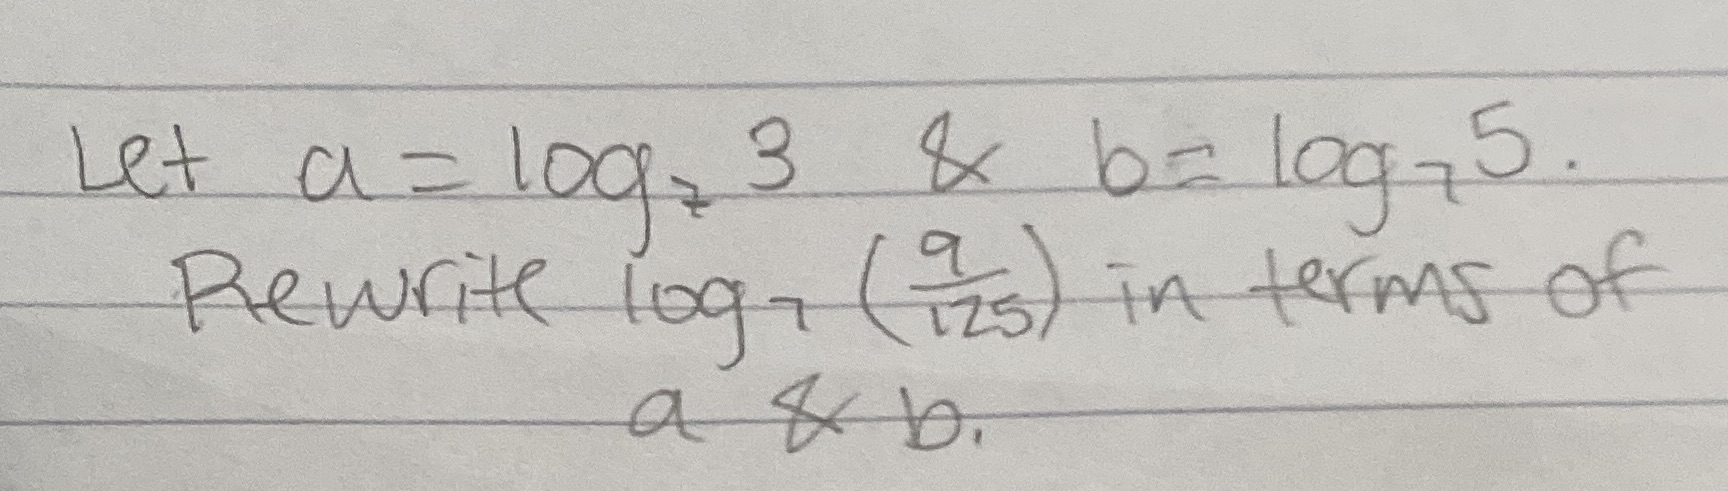 Let a = log₇ 3 & b = log₇ 5.
Rewrite log₇ (9/125) in terms of
a & b.